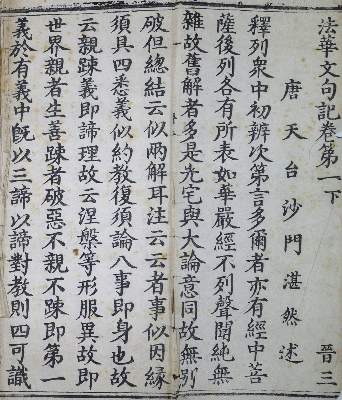 法華文句記卷第一下
晉三
唐天台沙門湛然述
釋列衆中初辨次第言多爾者亦有經中菩
薩後列各有所表如華嚴經不列聲聞純無
雜故舊解者多是光宅與大論意同故無別
破但總結云似兩解耳注云云者事似因緣
須具四悉義似約教復須論八事即身也故
云親踈義即諦理故云涅槃等形服異故即
世界親者生善踈者破惡不親不踈即第一
義於有義中旣以三諦以諦對教則四可識